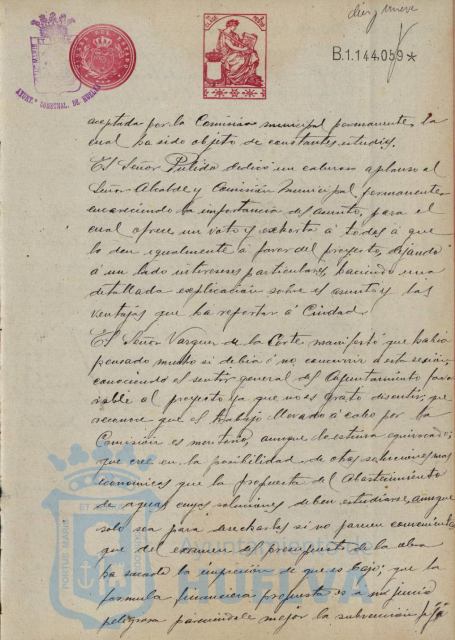 diez y nueve
B.1.144.059*
AYUNT.º CONSTNAL. DE HUELVA
aceptada por la Comisión municipal permanente, la
cual ha sido objeto de constantes estudios.
El Señor Pulido dedicó un caluroso aplauso al
Señor Alcalde y Comisión Municipal permanente
encareciendo la importancia del asunto, para el
cual ofrece un voto y exhorta á todos á que
lo den igualmente á favor del proyecto, dejando
á un lado intereses particulares, haciendo una
detallada explicación sobre el asunto y las
ventajas que ha reportar á Ciudad.
El Señor Vazquez de la Corte, manifestó que había
pensado mucho si debía ó no concurrir á esta sesión,
conociendo el sentir general del Ayuntamiento favo-
rable al proyecto ya que no es grato discutir; que
reconoce que el trabajo llevado á cabo por la
Comisión es meritorio, aunque lo estima equivocado;
que cree en la posibilidad de otras soluciones mas
económicas que la propuesta del Abastecimiento
de aguas cuyas soluciones deben estudiarse, aunque
solo sea para desecharlas si no parecen convenientes
que del examen del presupuesto de la obra
ha sacado la impresión de que es bajo; que la
formula financiera propuesta es a su juicio
peligrosa pareciendole mejor la subvención
PORTUS MARIS
ET TERRAE
Ayuntamiento de
HUELVA